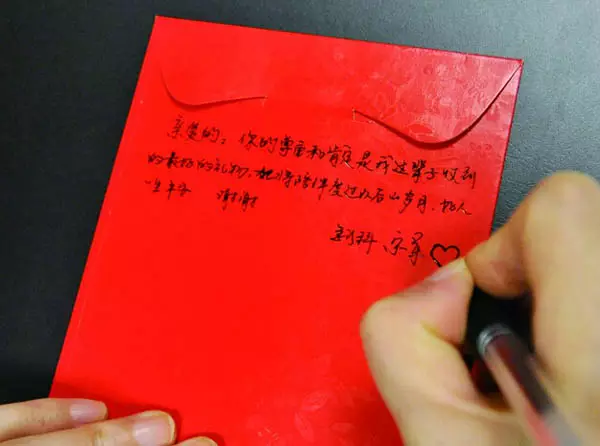 亲爱的，你的尊重和肯定是我这辈子收到
的最好的礼物，它将陪伴度过以后的岁月，好人
一生平安 谢谢
宋军